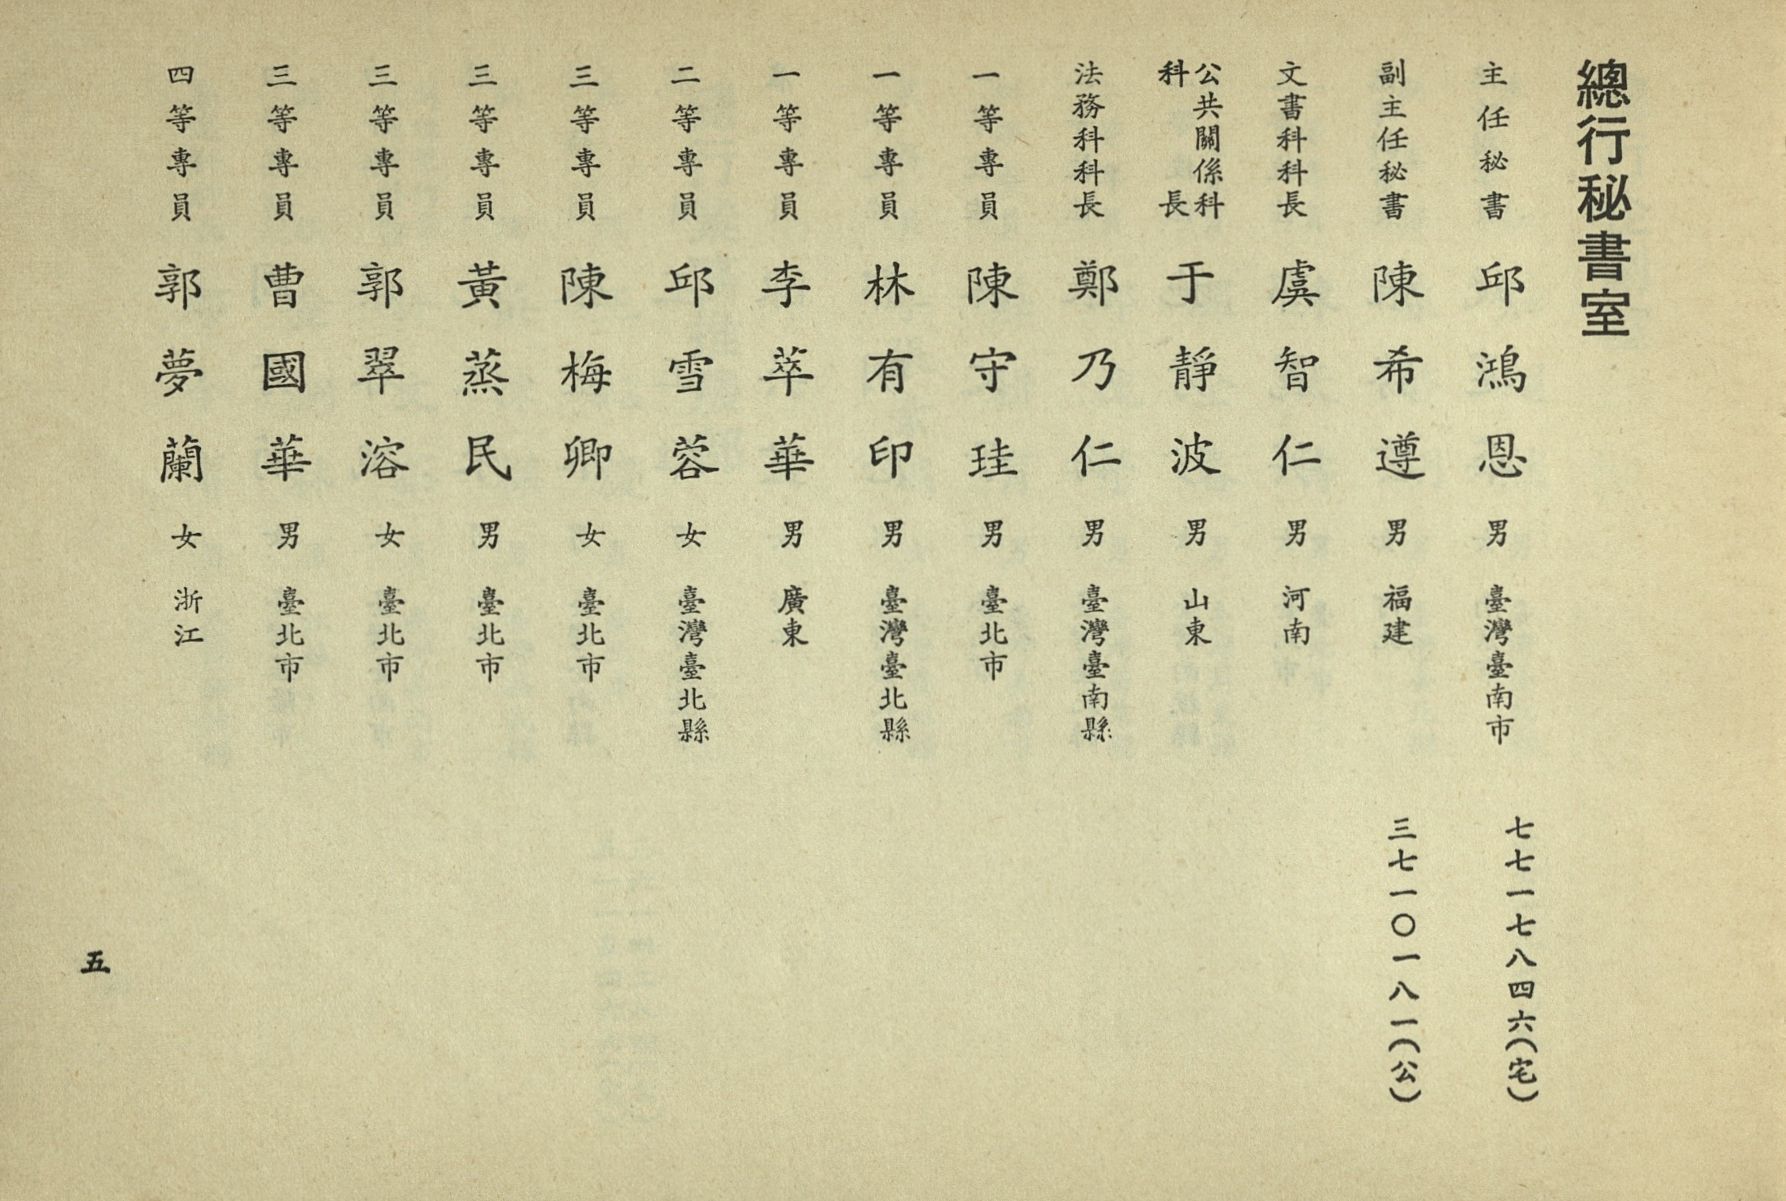 總行秘書室
主任秘書 邱鴻恩 男 臺灣臺南市 七七一七八四六(宅)
副主任秘書 陳希遵 男 福建 三七一〇一八一(公)
文書科科長 虞智仁 男 河南
公共關係科科長 于靜波 男 山東
法務科科長 鄭乃仁 男 臺灣臺南縣
一等專員 陳守珪 男 臺北市
一等專員 林有印 男 臺灣臺北縣
一等專員 李萃華 男 廣東
二等專員 邱雪蓉 女 臺灣臺北縣
三等專員 陳梅卿 女 臺北市
三等專員 黃蒸民 男 臺北市
三等專員 郭翠溶 女 臺北市
三等專員 曹國華 男 臺北市
四等專員 郭夢蘭 女 浙江
五